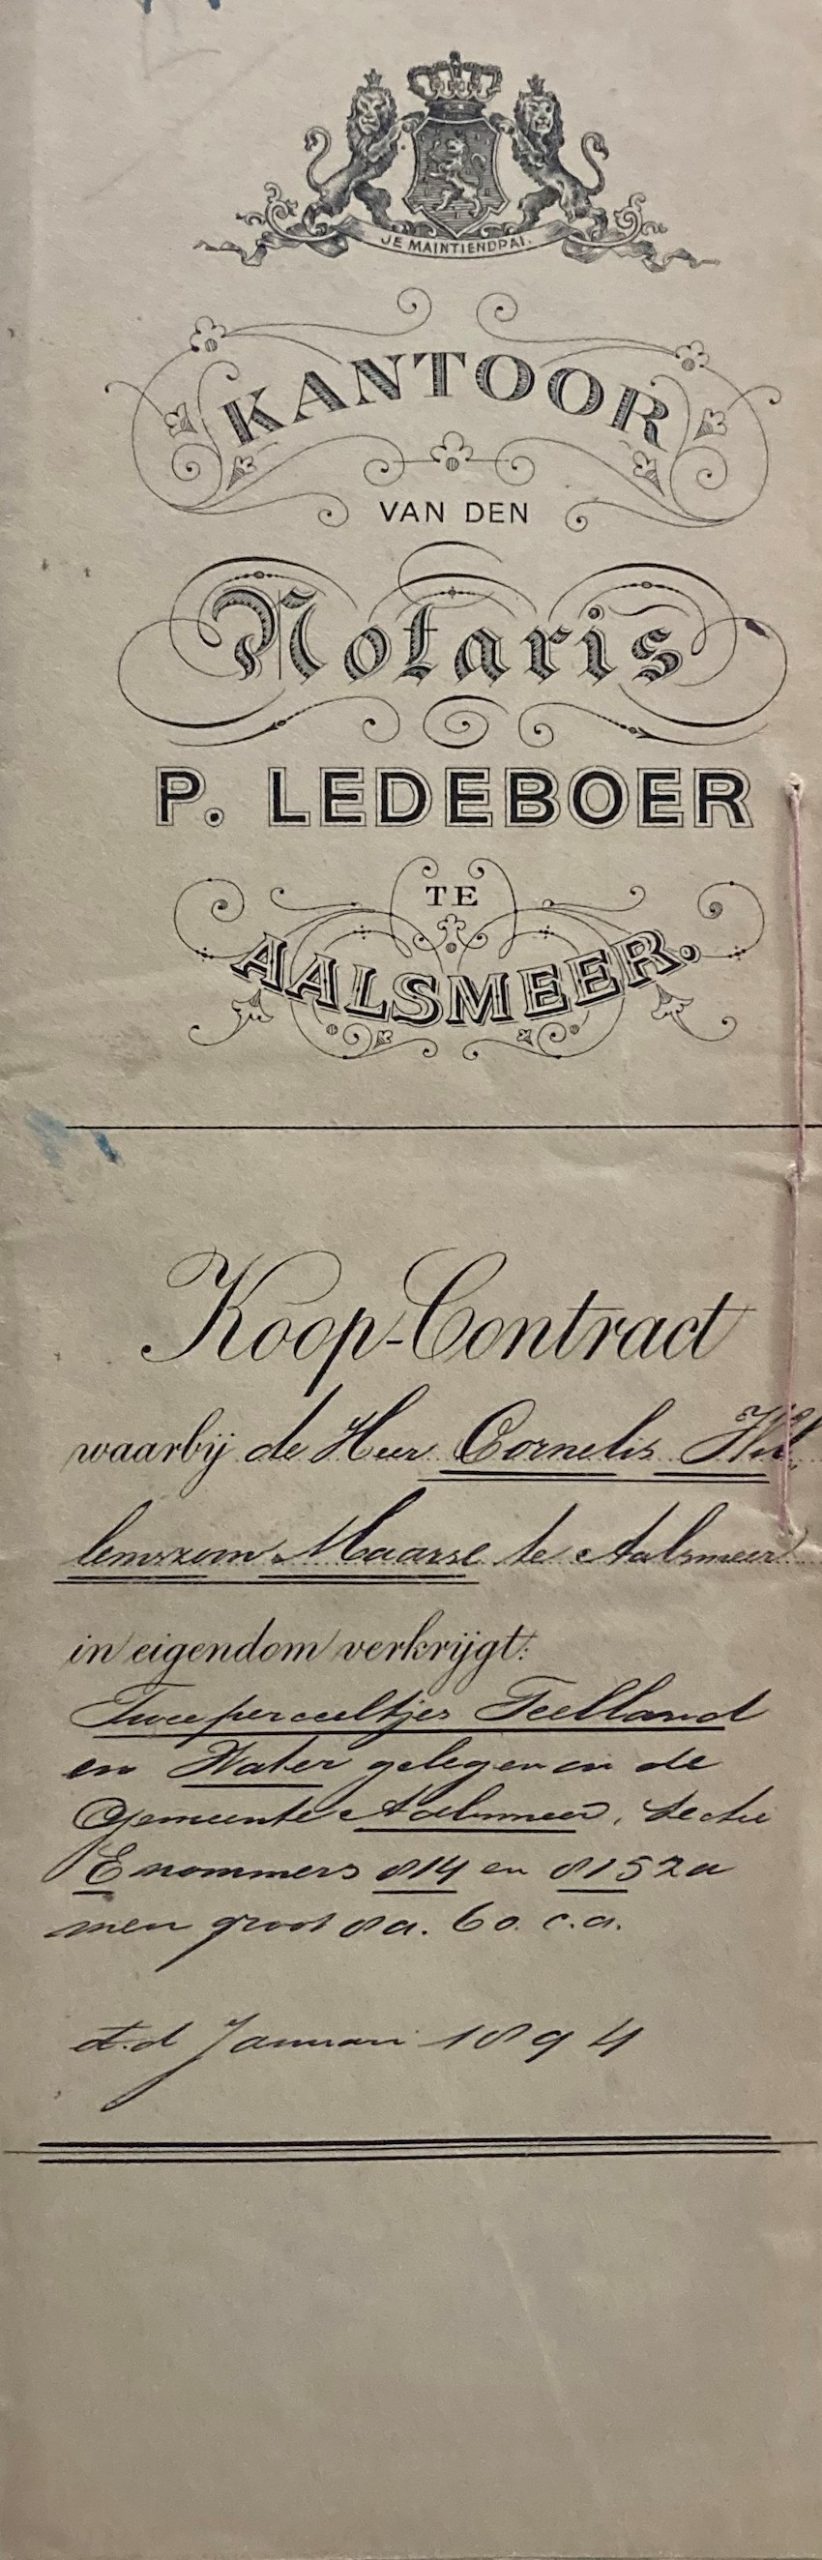 JE MAINTIENDRAI.
KANTOOR
VAN DEN
Notaris
P. LEDEBOER
TE
AALSMEER.
Koop-Contract
waarbij de Heer Cornelis Wil
lemszoon Maarse te Aalsmeer
in eigendom verkrijgt:
Twee perceeltjes Teelland
en Water gelegen in de
Gemeente Aalsmeer, Sectie
E nommers 814 en 815 za
men groot 8 a. 60. c.a.
d.d Januari 1894